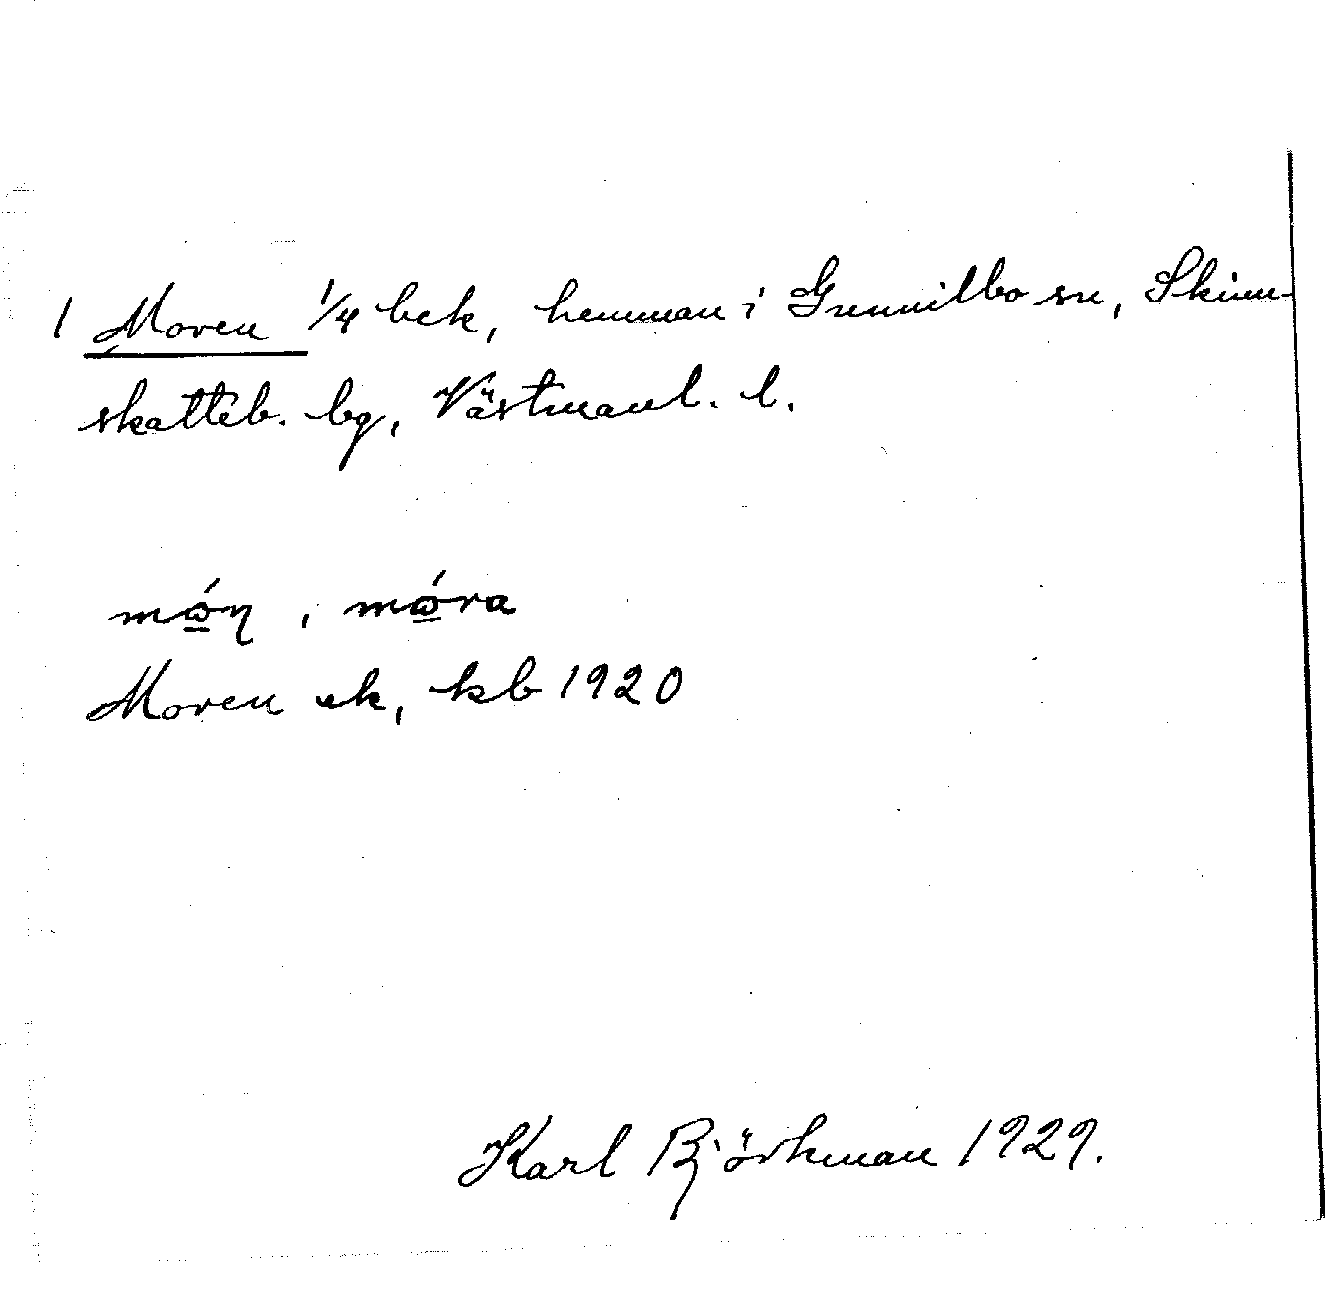 1 Moren 1/4 bek, hemman i Gunnilbo sn, Skinn-
skatteb. bg, Västmanl. l.
mώ̲η, mώ̲ra
Moren ek, kb 1920
Karl Björkman 1929.